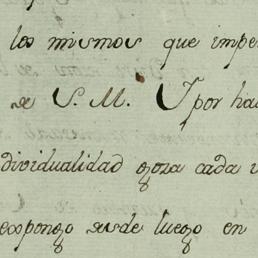 los mismos que impe
de S. M. Y por ha
dividualidad goza cada
expongo desde luego en